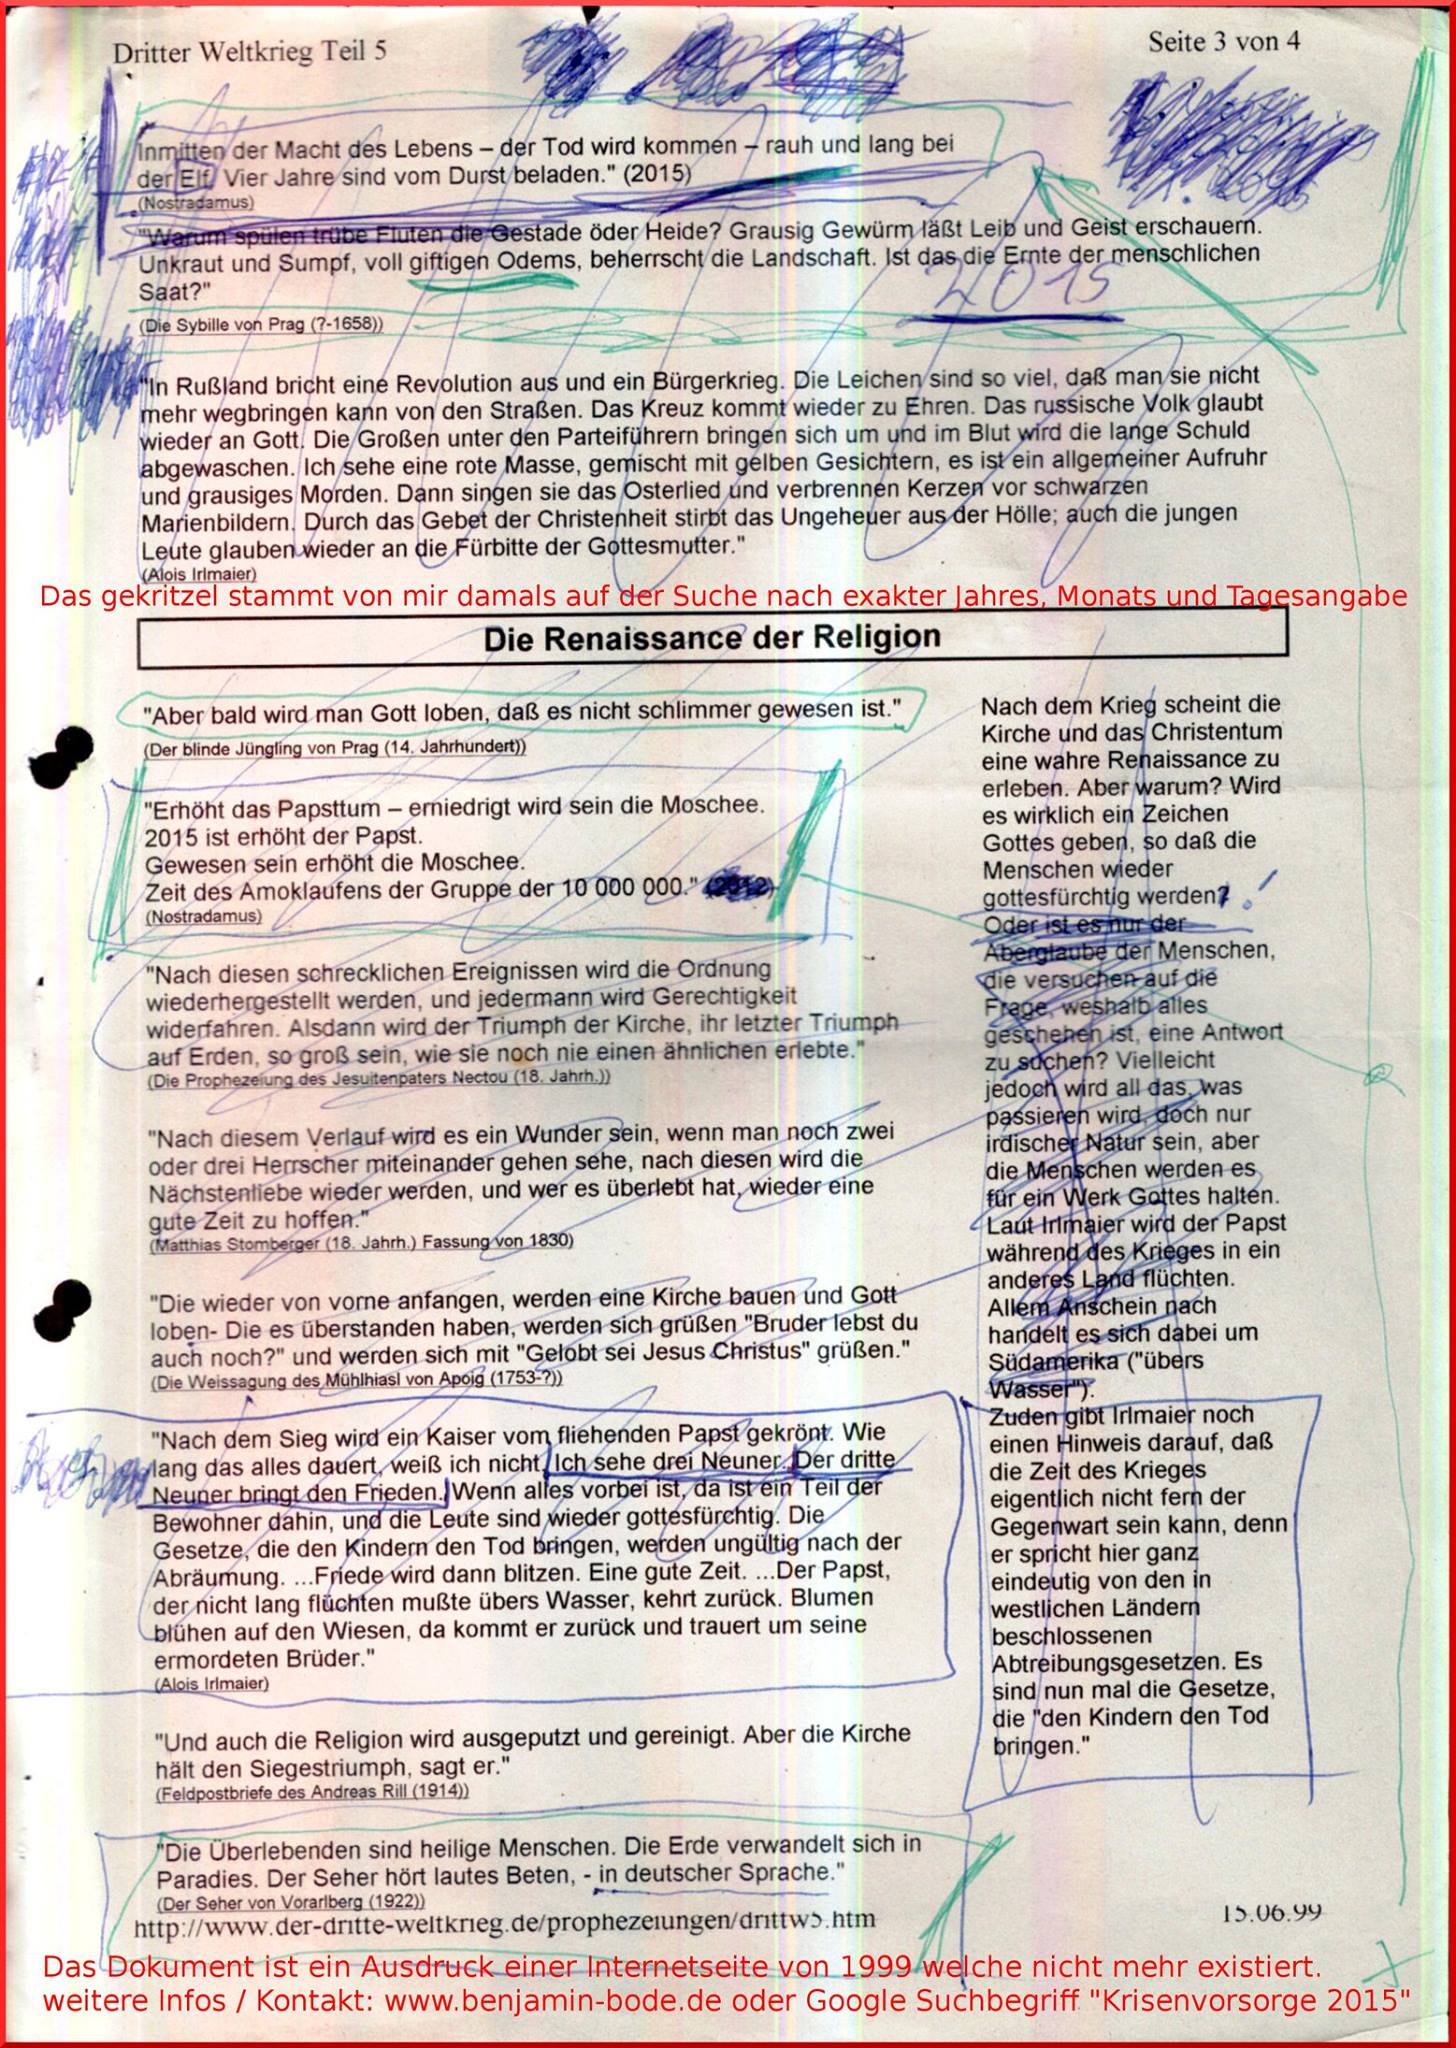 Dritter Weltkrieg Teil 5
Seite 3 von 4
Inmitten der Macht des Lebens – der Tod wird kommen – rauh und lang bei
der Elf. Vier Jahre sind vom Durst beladen." (2015)
(Nostradamus)
"Warum spülen trübe Fluten die Gestade öder Heide? Grausig Gewürm läßt Leib und Geist erschauern.
Unkraut und Sumpf, voll giftigen Odems, beherrscht die Landschaft. Ist das die Ernte der menschlichen
Saat?"
2015
(Die Sybille von Prag (?-1658))
"In Rußland bricht eine Revolution aus und ein Bürgerkrieg. Die Leichen sind so viel, daß man sie nicht
mehr wegbringen kann von den Straßen. Das Kreuz kommt wieder zu Ehren. Das russische Volk glaubt
wieder an Gott. Die Großen unter den Parteiführern bringen sich um und im Blut wird die lange Schuld
abgewaschen. Ich sehe eine rote Masse, gemischt mit gelben Gesichtern, es ist ein allgemeiner Aufruhr
und grausiges Morden. Dann singen sie das Osterlied und verbrennen Kerzen vor schwarzen
Marienbildern. Durch das Gebet der Christenheit stirbt das Ungeheuer aus der Hölle; auch die jungen
Leute glauben wieder an die Fürbitte der Gottesmutter."
(Alois Irlmaier)
Das gekritzel stammt von mir damals auf der Suche nach exakter Jahres, Monats und Tagesangabe
Die Renaissance der Religion
"Aber bald wird man Gott loben, daß es nicht schlimmer gewesen ist."
(Der blinde Jüngling von Prag (14. Jahrhundert))
"Erhöht das Papsttum – erniedrigt wird sein die Moschee.
2015 ist erhöht der Papst.
Gewesen sein erhöht die Moschee.
Zeit des Amoklaufens der Gruppe der 10 000 000." (2012)
(Nostradamus)
"Nach diesen schrecklichen Ereignissen wird die Ordnung
wiederhergestellt werden, und jedermann wird Gerechtigkeit
widerfahren. Alsdann wird der Triumph der Kirche, ihr letzter Triumph
auf Erden, so groß sein, wie sie noch nie einen ähnlichen erlebte."
(Die Prophezeiung des Jesuitenpaters Nectou (18. Jahrh.))
"Nach diesem Verlauf wird es ein Wunder sein, wenn man noch zwei
oder drei Herrscher miteinander gehen sehe, nach diesen wird die
Nächstenliebe wieder werden, und wer es überlebt hat, wieder eine
gute Zeit zu hoffen."
(Matthias Stomberger (18. Jahrh.) Fassung von 1830)
"Die wieder von vorne anfangen, werden eine Kirche bauen und Gott
loben- Die es überstanden haben, werden sich grüßen "Bruder lebst du
auch noch?" und werden sich mit "Gelobt sei Jesus Christus" grüßen."
(Die Weissagung des Mühlhiasl von Apoig (1753-?))
"Nach dem Sieg wird ein Kaiser vom fliehenden Papst gekrönt. Wie
lang das alles dauert, weiß ich nicht. Ich sehe drei Neuner. Der dritte
Neuner bringt den Frieden. Wenn alles vorbei ist, da ist ein Teil der
Bewohner dahin, und die Leute sind wieder gottesfürchtig. Die
Gesetze, die den Kindern den Tod bringen, werden ungültig nach der
Abräumung. ...Friede wird dann blitzen. Eine gute Zeit. ...Der Papst,
der nicht lang flüchten mußte übers Wasser, kehrt zurück. Blumen
blühen auf den Wiesen, da kommt er zurück und trauert um seine
ermordeten Brüder."
(Alois Irlmaier)
"Und auch die Religion wird ausgeputzt und gereinigt. Aber die Kirche
hält den Siegestriumph, sagt er."
(Feldpostbriefe des Andreas Rill (1914))
"Die Überlebenden sind heilige Menschen. Die Erde verwandelt sich in
Paradies. Der Seher hört lautes Beten, - in deutscher Sprache."
(Der Seher von Vorarlberg (1922))
Nach dem Krieg scheint die
Kirche und das Christentum
eine wahre Renaissance zu
erleben. Aber warum? Wird
es wirklich ein Zeichen
Gottes geben, so daß die
Menschen wieder
gottesfürchtig werden? !
Oder ist es nur der
Aberglaube der Menschen,
die versuchen auf die
Frage, weshalb alles
geschehen ist, eine Antwort
zu suchen? Vielleicht
jedoch wird all das, was
passieren wird, doch nur
irdischer Natur sein, aber
die Menschen werden es
für ein Werk Gottes halten.
Laut Irlmaier wird der Papst
während des Krieges in ein
anderes Land flüchten.
Allem Anschein nach
handelt es sich dabei um
Südamerika ("übers
Wasser").
Zuden gibt Irlmaier noch
einen Hinweis darauf, daß
die Zeit des Krieges
eigentlich nicht fern der
Gegenwart sein kann, denn
er spricht hier ganz
eindeutig von den in
westlichen Ländern
beschlossenen
Abtreibungsgesetzen. Es
sind nun mal die Gesetze,
die "den Kindern den Tod
bringen."
http://www.der-dritte-weltkrieg.de/prophezeiungen/drittw5.htm
15.06.99
Das Dokument ist ein Ausdruck einer Internetseite von 1999 welche nicht mehr existiert.
weitere Infos / Kontakt: www.benjamin-bode.de oder Google Suchbegriff "Krisenvorsorge 2015"